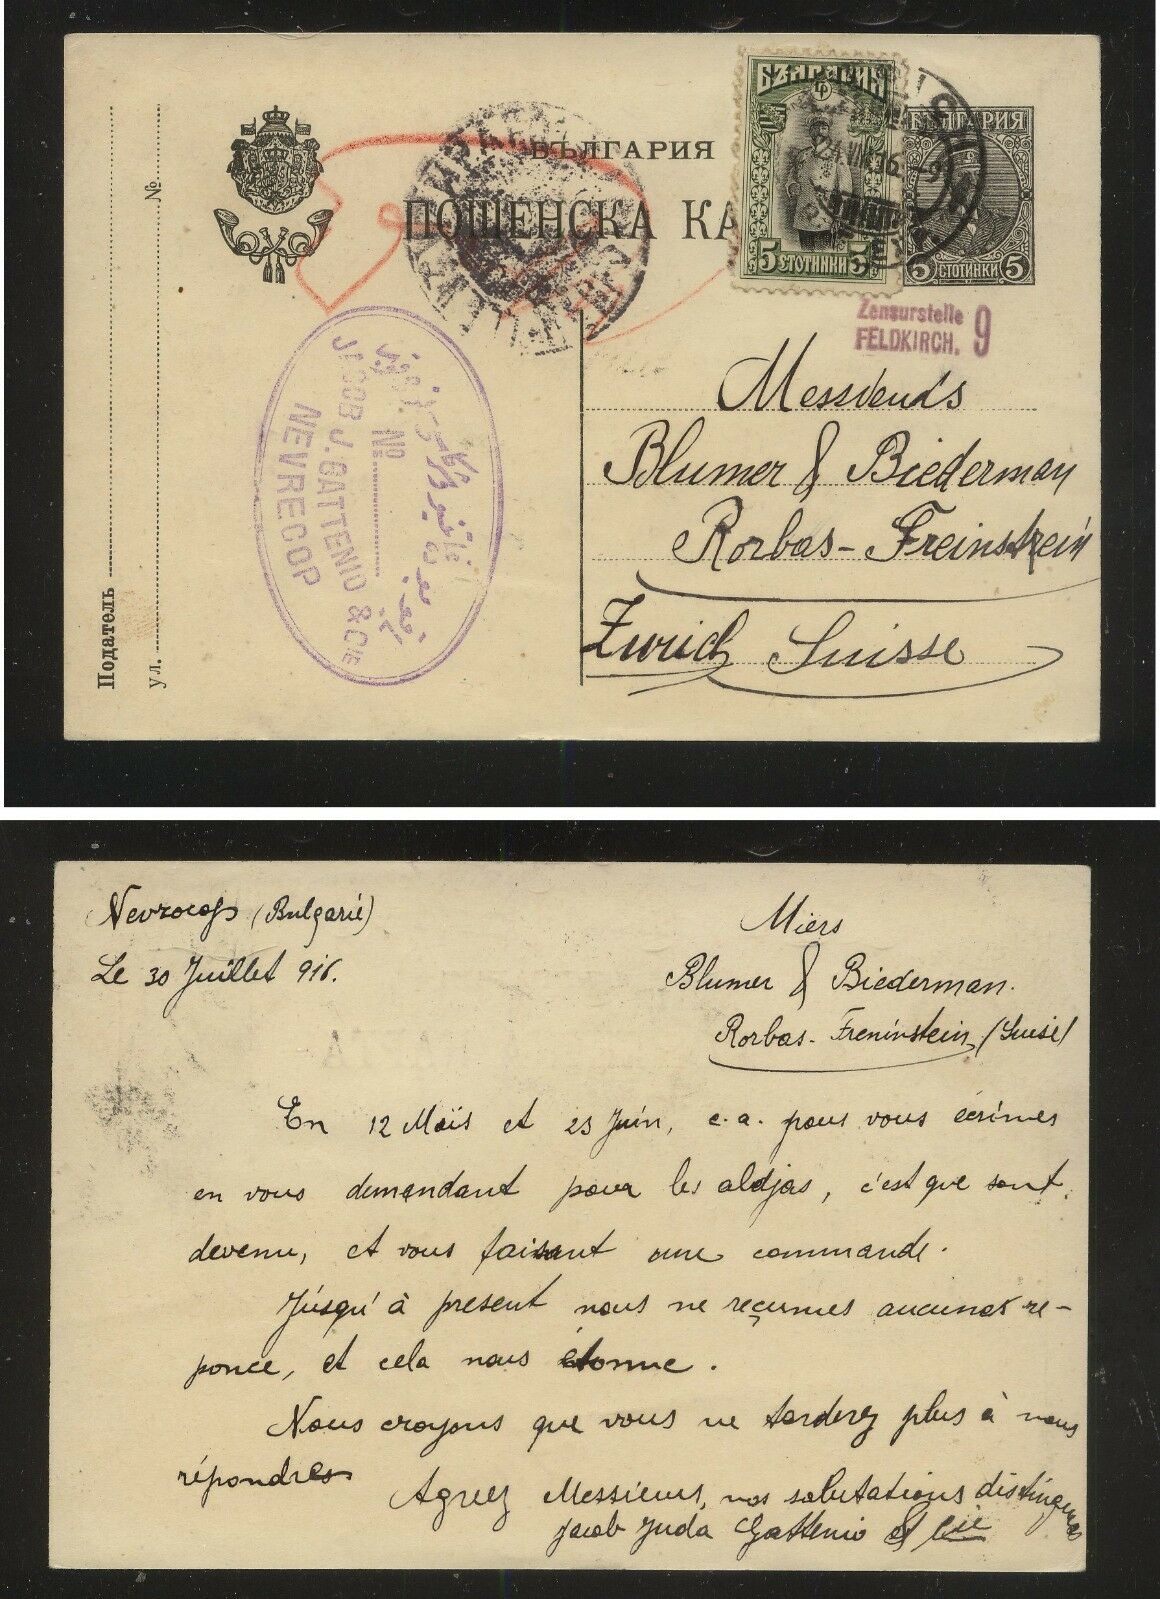 БЪЛГАРИЯ
ПОЩЕНСКА КА
БЪЛГАРИЯ
5 СТОТИНКИ 5
БЪЛГАРИЯ
5 СТОТИНКИ 5
Zensurstelle
FELDKIRCH. 9
Податель
ул. №
No
JACOB J. GATTENIO & CIE
NEVRECOP
Messieuds
Blumer & Biederman
Rorbas-Freinstein
Zurich Suisse
Nevrocop (Bulgarie)
Le 30 Juillet 916.
Miers
Blumer & Biederman.
Rorbas-Freninstein (Suise)
En 12 Maïs et 23 Juin, c.a. nous vous écrimes
en vous demandant pour les aldjas, c'est que sont
devenu, et vous faisant une commande.
Jusqu'à present nous ne reçumes aucunes re-
ponce, et cela nous étonne.
Nous croyons que vous ne tarderez plus à nous
répondres
Agreez Messieurs, nos salutations distingues
Jacob Juda Gattenio & Cie